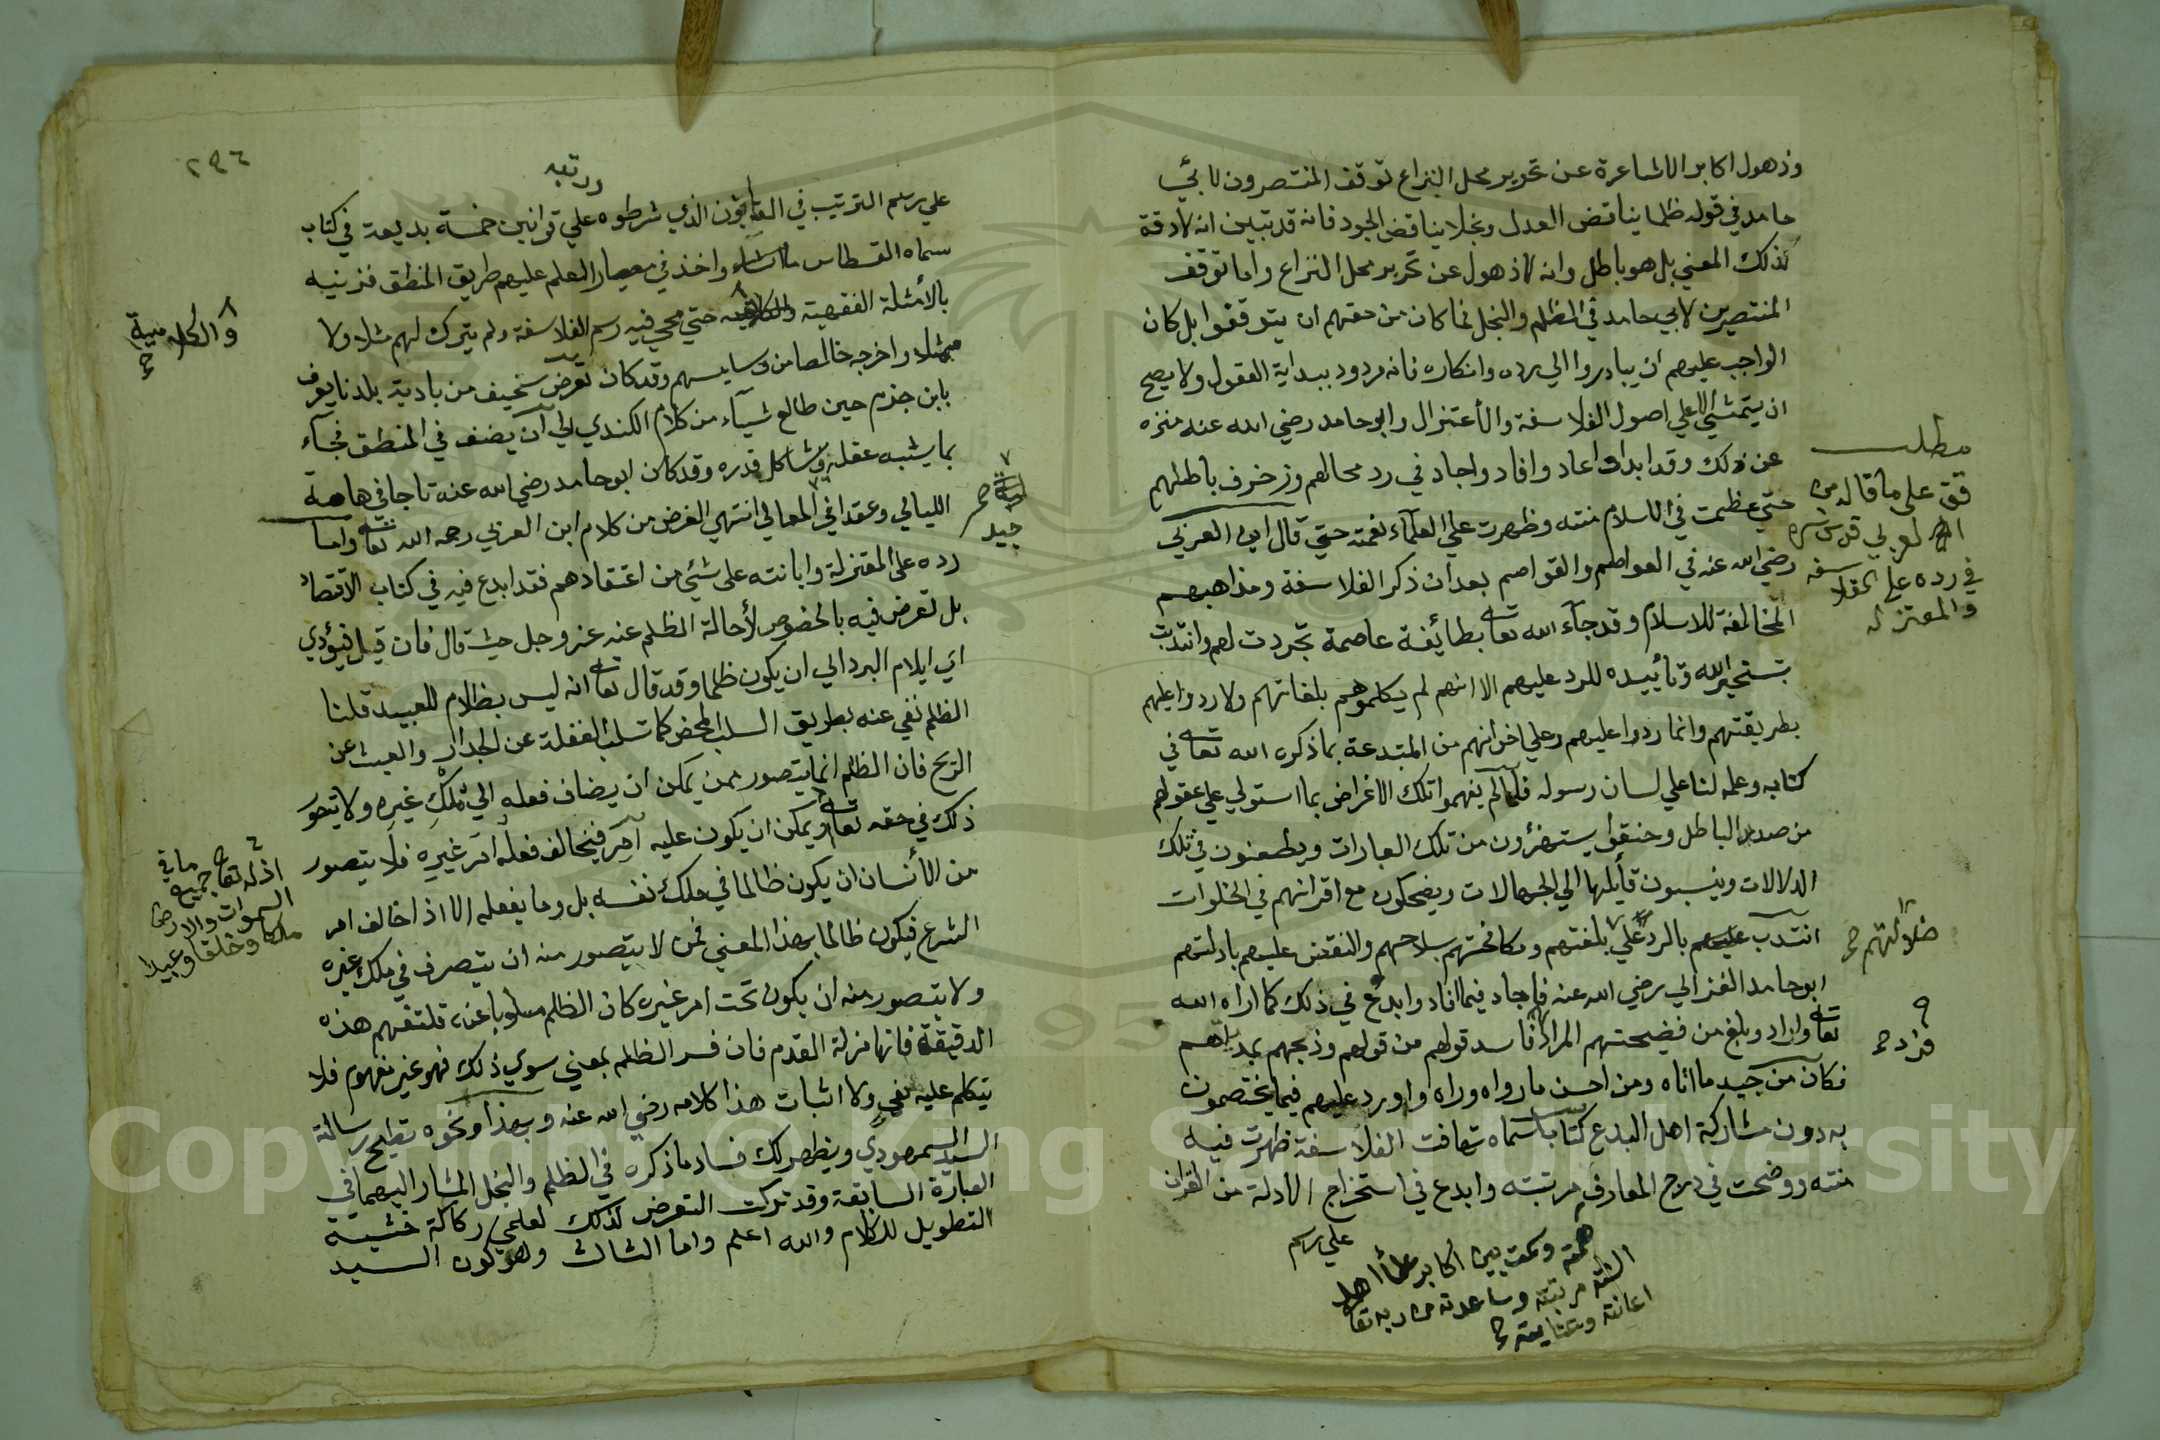 وذهول اكابر الاشاعرة عن تحرير محل النزاع توقف المنتصرون لابي
حامد في قوله ظلما يناقض العدل وبخلا يناقض الجود فانه قد تبين انه لا دقة
لذلك المعني بل هو باطل وانه لا ذهول عن تحرير محل النزاع واما توقف
المنتصرين لابي حامد في الظلم والبخل فما كان من حقهم ان يتوقفوا بل كان
الواجب عليهم ان يبادروا الي رده وانكاره فانه مردود ببداية العقول ولا يصح
ان يتمشي الا علي اصول الفلاسفة والاعتزال وابو حامد رضي الله عنه منزه
عن ذلك وقد ابدا واعاد وافاد واجاد في رد محالهم وزخرف باطلهم
حتي عظمت في الاسلام منته وظهرت علي العلماء نعمته حتي قال ابن العربي
رضي الله عنه في العواصم والقواصم بعد ان ذكر الفلاسفة ومذاهبهم
المخالفة للاسلام وقد جاء الله تعالى بطائفة عاصمة تجردت لهم وانتدبت
بتسخير الله وتأييده للرد عليهم الا انهم لم يكلموهم بلغاتهم ولا ردوا عليهم
بطريقتهم وانما ردوا عليهم وعلي اخوانهم من المبتدعة بما ذكره الله تعالى في
كتابه وعلمه لنا علي لسان رسوله فلما لم يفهموا تلك الاغراض بما استولي علي عقولهم
من صدا الباطل وحنقوا يستهزؤن من تلك العبارات ويطعنون في تلك
الدلالات وينسبون قائلها الي الجهالات ويضحكون مع اقرانهم في الخلوات
انتدب بالرد علي بلغتهم ومكافحتهم بسلاحهم والنقض عليهم بادلتهم
ابو حامد الغزالي رضي الله عنه فاجاد فيما افاد وابدع في ذلك كما اراه الله
تعالى واراد وبلغ من فضيحتهم المراد فافسد قولهم من قولهم وذبحهم بمداهم
فكان من جيد ما اتاه ومن احسن ما رواه وراه واورد عليهم فيما يختصمون
به دون مشاركة اهل البدع كتابا سماه تهافت الفلاسفة ظهرت فيه
منته ووضحت في درج المعارف مرتبته وابدع في استخراج الادلة من القران
علي رسم
مطلب
قف علي ما قاله من
العربي قدس سره
في رده علي الفلاسفه
والمعتزله
ضلالتهم صح
فزاد صح
همته وكمت بين اكابر علماء اهل
السنة مرتبته وساعدته من ربه تعالى
اعانته وعنايته صح
٢٩٦
ورتبه
علي رسم الترتيب في القانون الذي شرطوه علي قوانين خمسة بديعة في كتاب
سماه القسطاس ما شاء واخذ في معيار العلم عليهم طريق المنطق فزينه
بالأمثلة الفقهية والكلامية حتي محي فيه رسم الفلاسفة ولم يترك لهم مثلا ولا
ممثلا واخرجه خالصا من دسايسهم وقد كان تعرض سخيف من بادية بلدنا يعرف
بابن حزم حين طالع شيأء من كلام الكندي الي ان يصنف في المنطق فجاء
بما يشبه عقله ويشاكل قدره وقد كان ابو حامد رضي الله عنه تاجا في هامة
الليالي وعقدا في المعالي انتهي الغرض من كلام ابن العربي رحمه الله تعالى واما
رده علي المعتزلة وابانته علي شيئ من اعتقادهم فقد ابدع فيه في كتاب الاقتصاد
بل تعرض فيه بالخصوص لأحالة الظلم عنه عز وجل حيث قال فان قيل فيؤدي
اي ايلام البرد الي ان يكون ظلما وقد قال تعالى انه ليس بظلام للعبيد قلنا
الظلم نفي عنه بطريق السلب المحض كما تسلب الغفلة عن الجدار والعبث عن
الريح فان الظلم انما يتصور ممن يمكن ان يضاف فعله الي ملك غيره ولا يتصور
ذلك في حقه تعالى ويمكن ان يكون عليه آمر فيخالف فعله امر غيره فلا يتصور
من الأنسان ان يكون ظالما في ملك نفسه بل وما يفعله الا اذا خالف امر
الشرع فيكون ظالما بهذا المعني فمن لا يتصور منه ان يتصرف في ملك غيره
ولا يتصور منه ان يكون تحت امر غيره كان الظلم مسلوبا عنه، فلتفهم هذه
الدقيقة فانها مزلة القدم فان فسر الظلم بمعني سوي ذلك فهو غير مفهوم فلا
يتكلم عليه بنفي ولا اثبات هذا كلامه رضي الله عنه وبهذا ونحوه تطيح رسالة
السيد السمهودي ويظهر لك فساد ما ذكره في الظلم والبخل المشار اليهما في
العبارة السابقة وقد تركت التعرض لذلك لعلمي ركاكة خشية
التطويل للكلام والله اعلم واما الثالث وهو كون السيد
والكلامية
صح
جيد
اذ له تعالى جميع ما في
السموات والارض
ملكا وخلقا وعبيدا
Copyright © King Saud University
1957